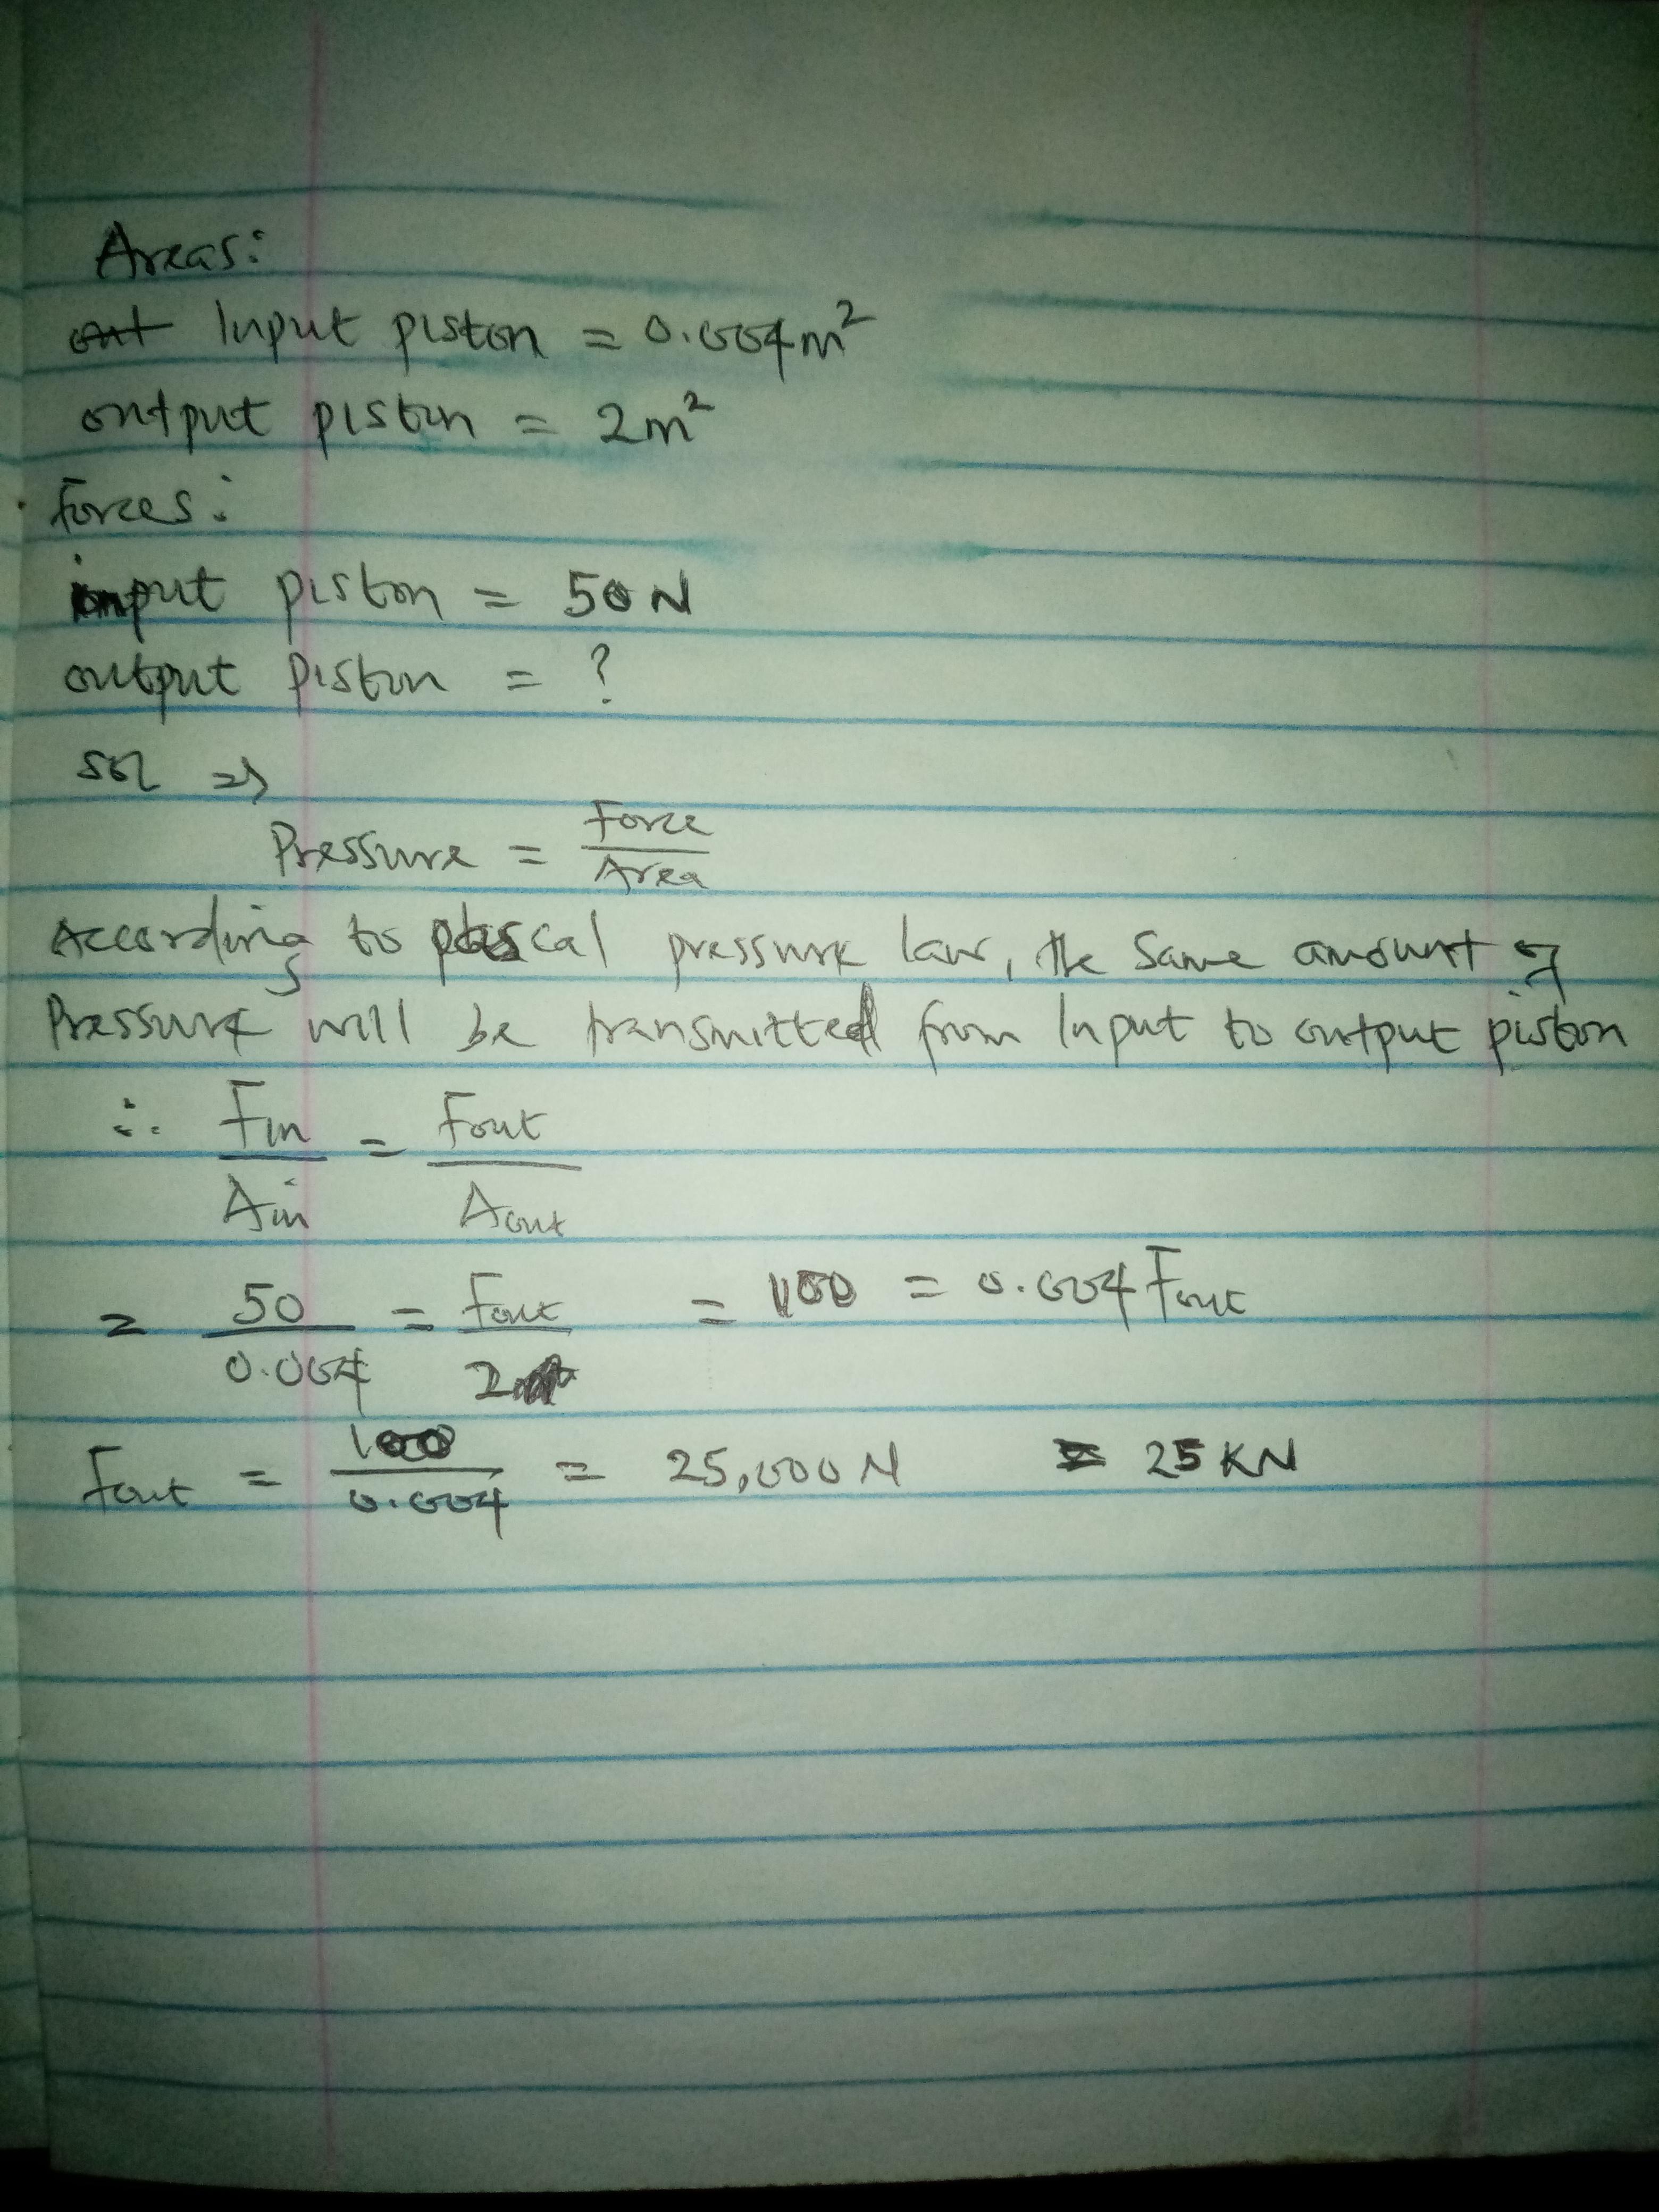 Areas:
Input piston = 0.004m²
output piston = 2m²
Forces:
input piston = 50N
output piston = ?
sol =>
Pressure = Force / Area
According to pascal pressure law, the same amount of
Pressure will be transmitted from Input to output piston
∴ Fin / Ain = Fout / Aout
= 50 / 0.004 = Fout / 2 = 100 = 0.004 Fout
Fout = 100 / 0.004 = 25,000N = 25KN